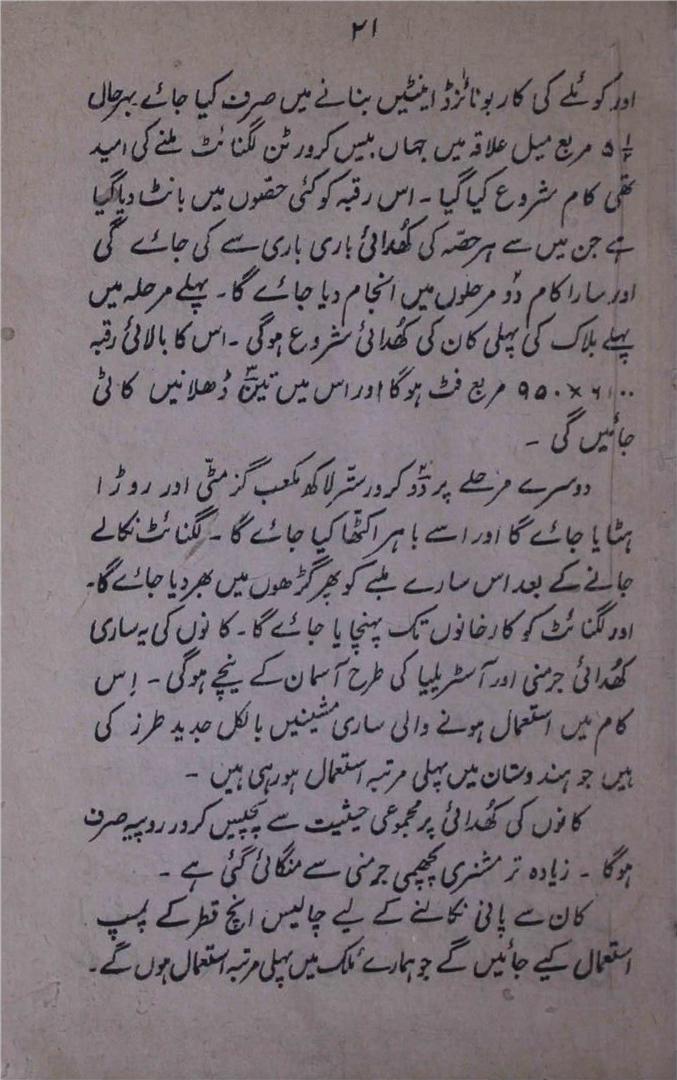 ۲۱
اور کوئلے کی کاربونائزڈ اینٹیں بنانے میں صرف کیا جائے بہرحال
۵½ مربع میل علاقہ میں جہاں بیس کرور ٹن لگنائٹ ملنے کی امید
تھی کام شروع کیا گیا ۔ اس رقبہ کو کئی حصّوں میں بانٹ دیا گیا
ہے جن میں سے ہر حصّہ کی کھُدائی باری باری سے کی جائے گی
اور سارا کام دو مرحلوں میں انجام دیا جائے گا ۔ پہلے مرحلہ میں
پہلے بلاک کی پہلی کان کی کھُدائی شروع ہوگی ۔ اس کا بالائی رقبہ
۶۱۰۰ × ۹۵۰ مربع فٹ ہوگا اور اس میں تین ڈھلانیں کاٹی
جائیں گی ۔
دوسرے مرحلے پر دو کرور ستّر لاکھ مکعب گز مٹّی اور روڑا
ہٹایا جائے گا اور اسے باہر اکٹھا کیا جائے گا ۔ لگنائٹ نکالے
جانے کے بعد اس سارے ملبے کو پھر گڑھوں میں بھر دیا جائے گا۔
اور لگنائٹ کو کارخانوں تک پہنچایا جائے گا ۔ کانوں کی یہ ساری
کھُدائی جرمنی اور آسٹریلیا کی طرح آسمان کے نیچے ہوگی ۔ اِس
کام میں استعمال ہونے والی ساری مشینیں بالکل جدید طرز کی
ہیں جو ہندوستان میں پہلی مرتبہ استعمال ہو رہی ہیں ۔
کانوں کی کھُدائی پر مجموعی حیثیت سے پچیس کرور روپیہ صرف
ہوگا ۔ زیادہ تر مشنری پچھمی جرمنی سے منگائی گئی ہے ۔
کان سے پانی نکالنے کے لیے چالیس انچ قطر کے پمپ
استعمال کیے جائیں گے جو ہمارے ملک میں پہلی مرتبہ استعمال ہوں گے۔